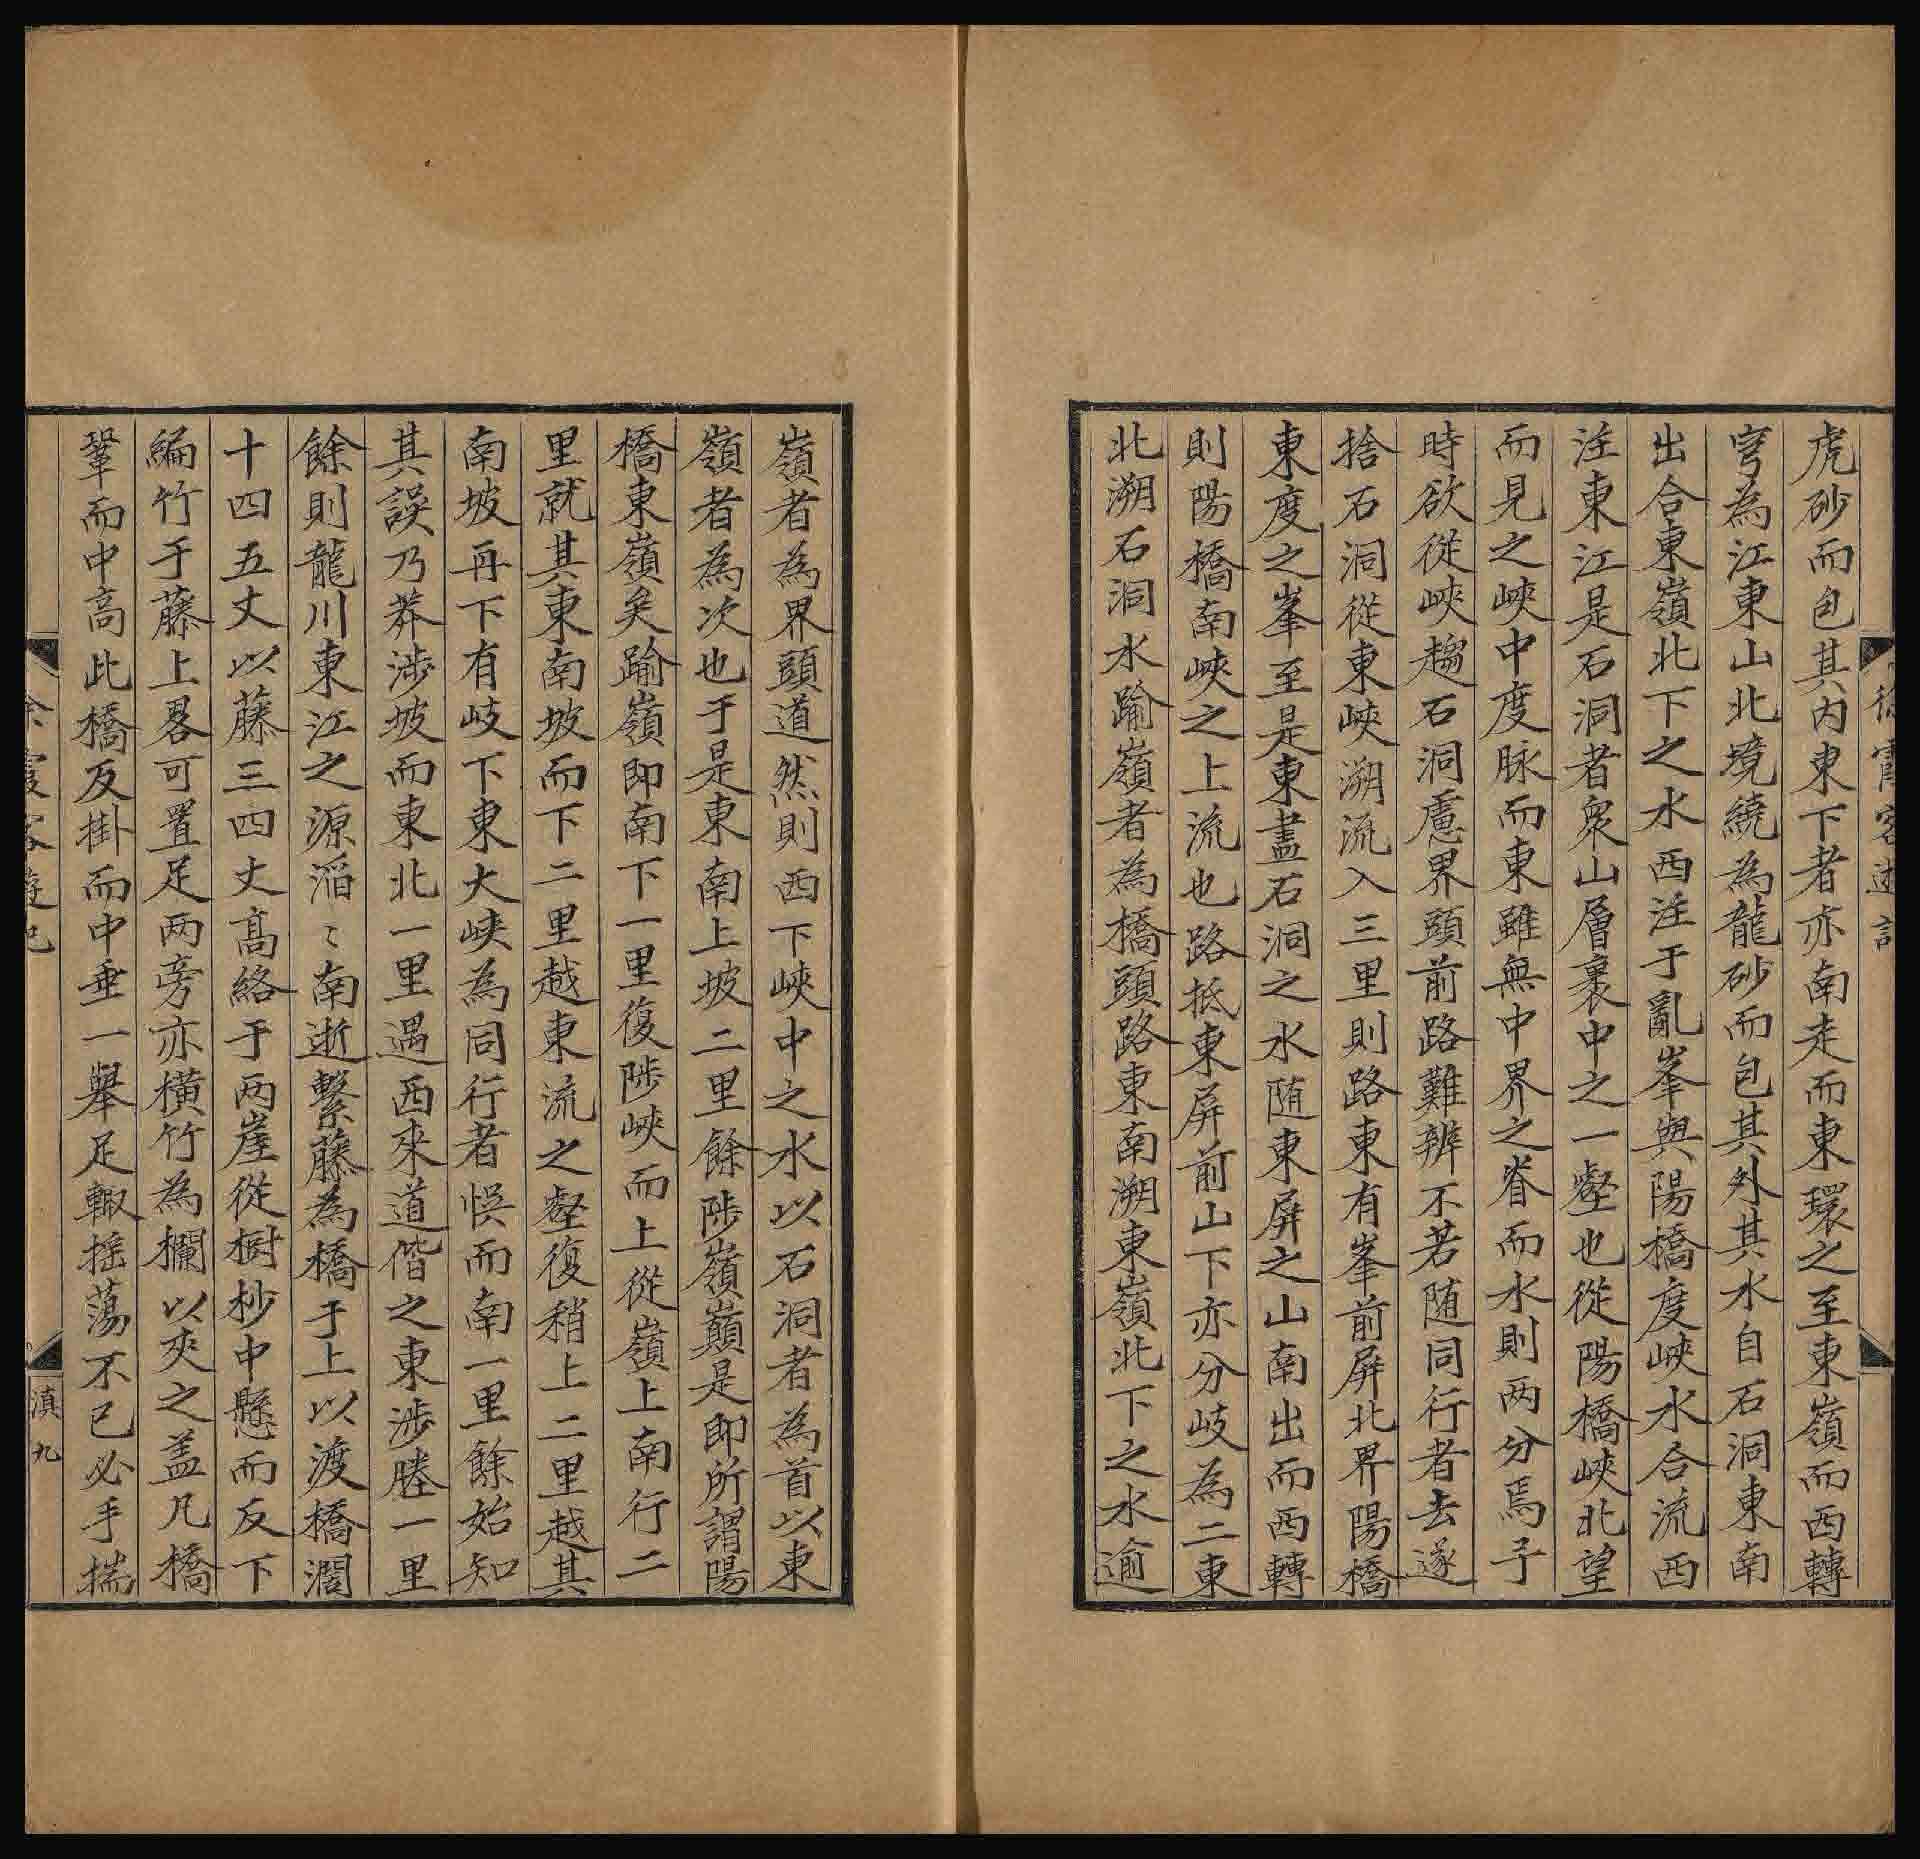 虎砂而包其内東下者亦南走而東環之至東嶺而西轉
穹為江東山北境繞為龍砂而包其外其水自石洞東南
出合東嶺北下之水西注于亂峯與陽橋度峽水合流西
注東江是石洞者衆山層裹中之一壑也從陽橋峽北望
而見之峽中度脉而東雖無中界之脊而水則两分焉予
時欲從峽趨石洞慮界頭前路難辨不若随同行者去遂
捨石洞從東峽溯流入三里則路東有峯前屏北界陽橋
東度之峯至是東盡石洞之水随東屏之山南出而西轉
則陽橋南峽之上流也路抵東屏前山下亦分岐為二東
北溯石洞水踰嶺者為橋頭路東南溯東嶺北下之水逾
嶺者為界頭道然則西下峽中之水以石洞者為首以東
嶺者為次也于是東南上坡二里餘陟嶺巔是即所謂陽
橋東嶺矣踰嶺即南下一里復陟峽而上從嶺上南行二
里就其東南坡而下二里越東流之壑復稍上二里越其
南坡再下有岐下東大峽為同行者悞而南一里餘始知
其誤乃莽涉坡而東北一里遇西來道偕之東涉塍一里
餘則龍川東江之源滔〻南逝繫藤為橋于上以渡橋濶
十四五丈以藤三四丈高絡于两崖從樹杪中懸而反下
編竹于藤上畧可置足两旁亦橫竹為欄以夾之盖凡橋
鞏而中高此橋反掛而中垂一舉足輙搖蕩不已必手揣
徐霞客遊記
滇九